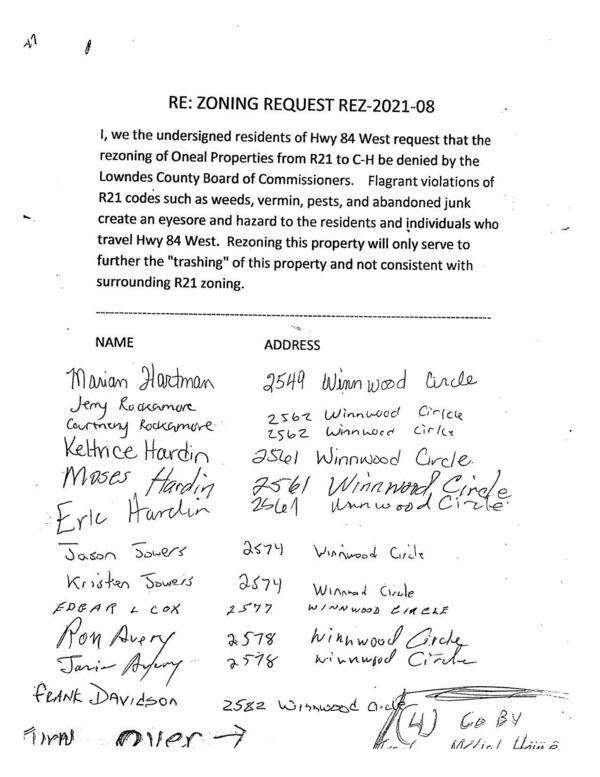 RE: ZONING REQUEST REZ-2021-08
I, we the undersigned residents of Hwy 84 West request that the
rezoning of Oneal Properties from R21 to C-H be denied by the
Lowndes County Board of Commissioners. Flagrant violations of
R21 codes such as weeds, vermin, pests, and abandoned junk
create an eyesore and hazard to the residents and individuals who
travel Hwy 84 West. Rezoning this property will only serve to
further the "trashing" of this property and not consistent with
surrounding R21 zoning.
NAME ADDRESS
Marian Hartman 2549 Winnwood Circle
Jerry Rockamore 2562 Winnwood Circle
Courtney Rockamore 2562 Winnwood Circle
Keltrice Hardin 2561 Winnwood Circle
Moses Hardin 2561 Winnwood Circle
Eric Hardin 2561 Winnwood Circle
Jason Sowers 2574 Winnwood Circle
Kristen Sowers 2574 Winnwood Circle
EDGAR L COX 2577 WINNWOOD CIRCLE
Ron Avery 2578 Winnwood Circle
Avery 2578 Winnwood Circle
FRANK DAVIDSON 2582 Winnwood Circle
Turn over → (4) Go BY